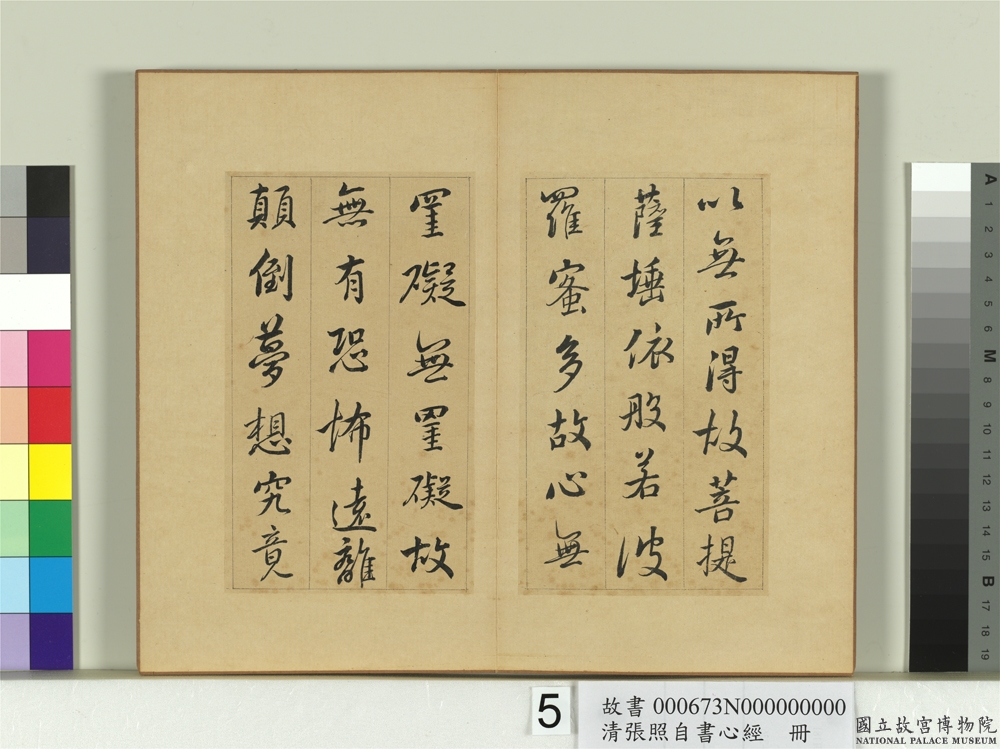 以無所得故菩提
薩埵依般若波
羅蜜多故心無
罣礙無罣礙故
無有恐怖遠離
顛倒夢想究竟
5
故書 000673N000000000
清張照自書心經 冊
國立故宮博物院
NATIONAL PALACE MUSEUM
A
1
2
3
4
5
6
M
8
9
10
11
12
13
14
15
B
17
18
19